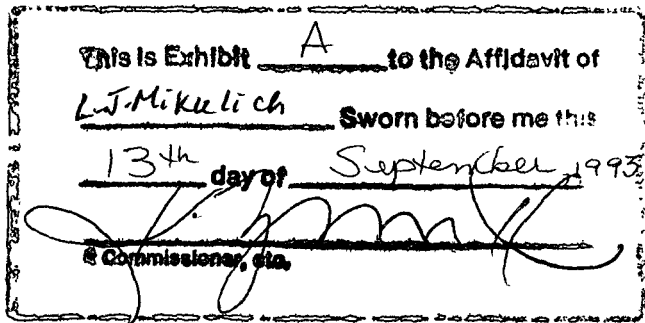 This is Exhibit A to the Affidavit of
L.J. Mikulich Sworn before me this
13th day of September, 1993
A Commissioner, etc.